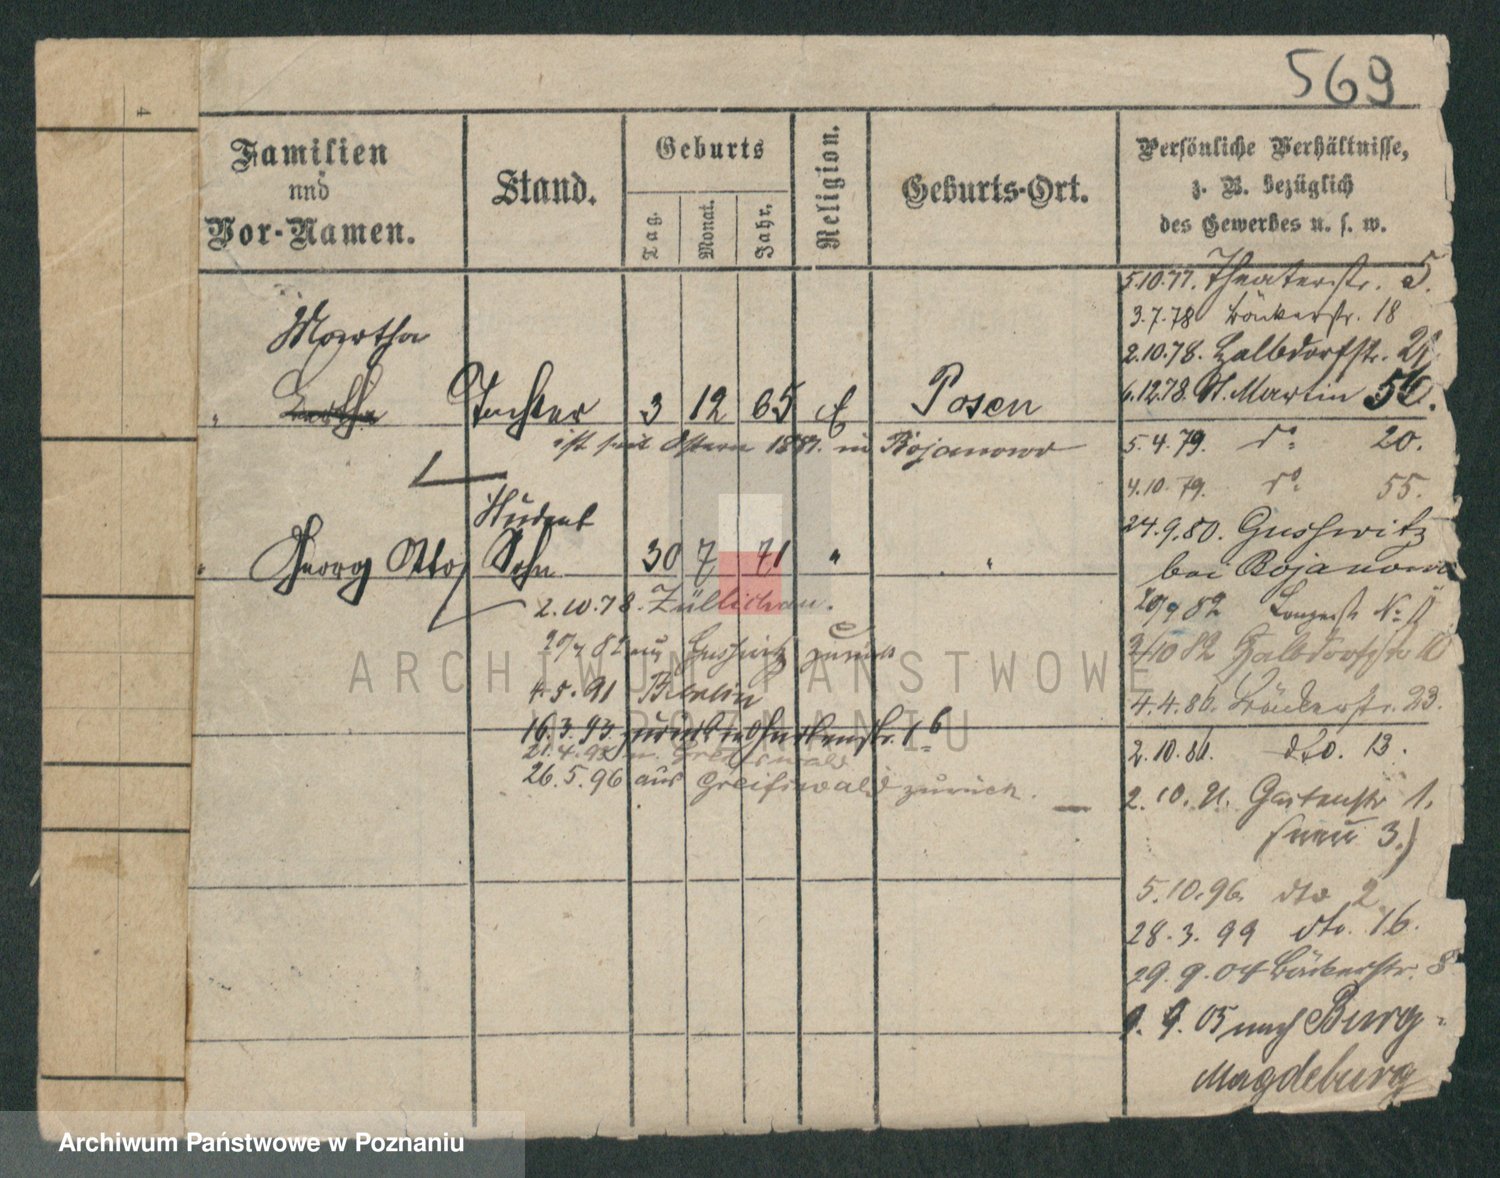 569
4
Familien
und
Vor-Namen.
Stand.
Geburts
Tag.
Monat.
Jahr.
Religion.
Geburts-Ort.
Persönliche Verhältnisse,
z. B. bezüglich
des Gewerbes u. s. w.
Martha
" Tochter 3 12 65 Posen
ist seit Ostern in Bojanowo
Student
" Georg Otto, Sohn 30 7 71 " "
2.10.78. Züllichau.
zurück
4.5.91 Berlin
16.3.93. zurück
Greifswald
26.5.96 aus Greifswald zurück.
5.10.77. Theaterstr. 5.
3.7.78 Bäckerstr. 18
2.10.78. Halbdorfstr.
6.12.78. St. Martin
5.4.79. do 20.
4.10.79. do 55.
24.9.80. Guschwitz
bei Bojanowo
82 Langestr No
2/10 82 Halbdorfstr 10
4.4.86. Bäckerstr. 23.
2.10.86. dto. 13.
2.10. Gartenstr 1.
(neu 3.)
5.10.96. dto 2
28.3.99 dto. 16.
29.9.04 Bäckerstr. 8
9.05 nach Burg-
Magdeburg
ARCHIWUM PAŃSTWOWE
W POZNANIU
Archiwum Państwowe w Poznaniu